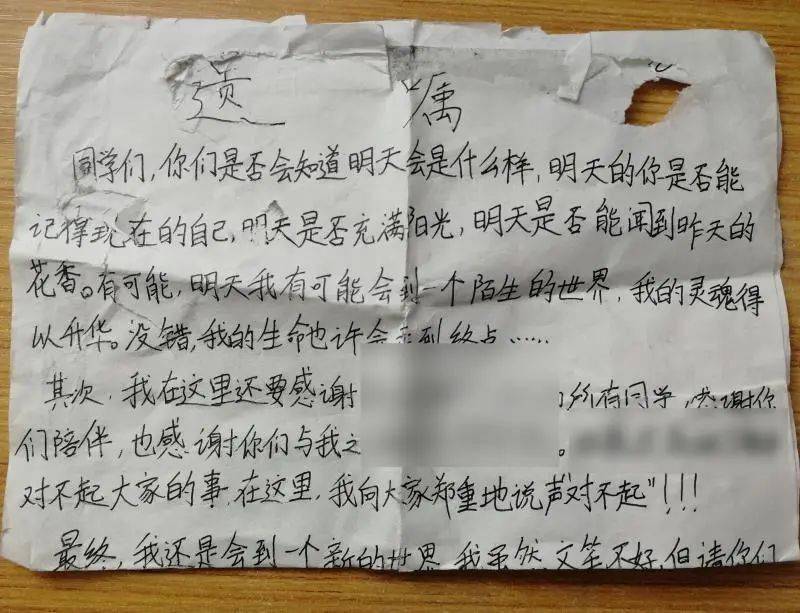 遗嘱
同学们，你们是否会知道明天会是什么样，明天的你是否能
记得现在的自己，明天是否充满阳光，明天是否能闻到昨天的
花香。有可能，明天我有可能会到一个陌生的世界，我的灵魂得
以升华。没错，我的生命也许会来到终点……
其次，我在这里还要感谢 所有同学，感谢你
们陪伴，也感谢你们与我之 。
对不起大家的事，在这里，我向大家郑重地说声“对不起”!!!
最终，我还是会到一个新的世界，我虽然文笔不好，但请你们